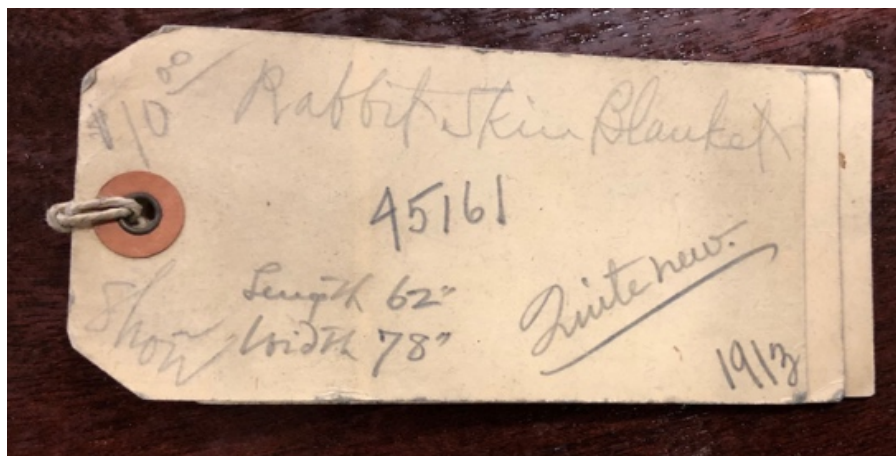 $10.00
Rabbit Skin Blanket
45161
Length 62"
Width 78"
Show
Quite new.
1913